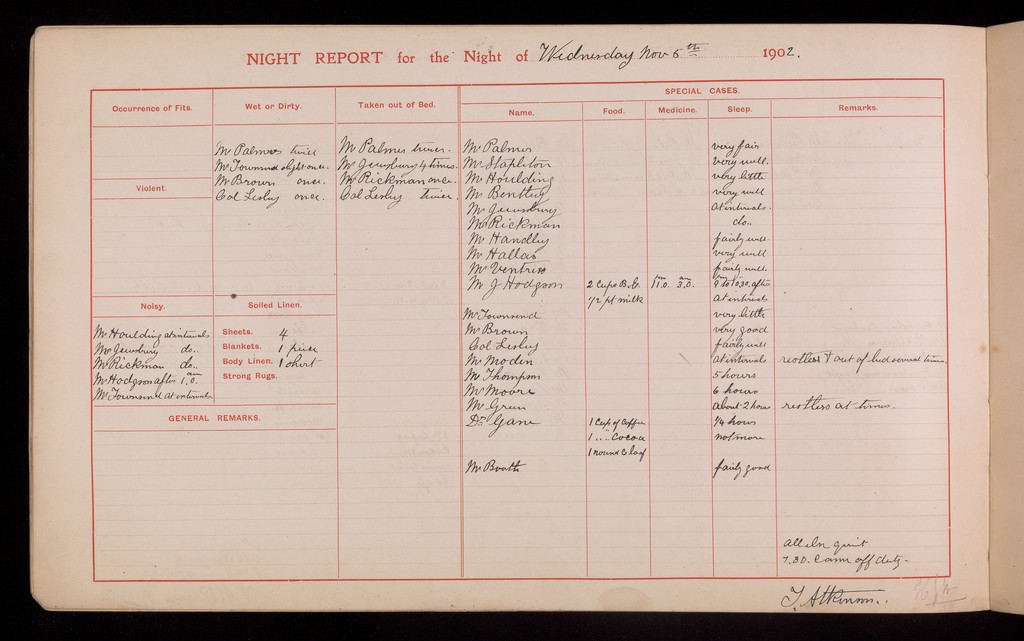 NIGHT REPORT for the Night of Wednesday Nov 5th 1902.
Occurrence of Fits.
Wet or Dirty.
Taken out of Bed.
SPECIAL CASES.
Name. Food. Medicine. Sleep. Remarks.
Violent.
Mr Palmer twice
Mr Townsend slight once.
Mr Brown once.
Col Lesley once.
Mr Palmer twice.
Mr Jewsbury 4 times.
Mr Rickman once.
Col Lesley twice.
Noisy.
Mr Houlding at intervals
Mr Jewsbury do..
Mr Rickman do..
Mr Hodgson after 1.0. am
Mr Townsend at intervals
Soiled Linen.
Sheets. 4
Blankets. 1 piece
Body Linen. 1 shirt
Strong Rugs.
GENERAL REMARKS.
Mr Palmer very fair
Mr Stapleton very well.
Mr Houlding very little
Mr Bentley very well
Mr Jewsbury at intervals.
Mr Rickman do..
Mr Handley fairly well
Mr Hallas very well
Mr Ventriss fairly well.
Mr J Hodgson 2 Cups B.C. 11.0. pm 3.0. am 9 to 10.30. after
1/2 pt milk at intervals
Mr Townsend very little
Mr Brown very good
Col Lesley fairly well
Mr Moden at interval restless & out of bed several times.
Mr Thompson 5 hours
Mr Moore 6 hours
Mr Green about 2 hours restless at times.
Dr Gane 1 Cup of Coffee 1/4 hours
1 .. .. Cocoa not more
1 round B loaf
Mr Booth fairly good
All else quiet
7.30. Came off duty.
T. Atkinson.